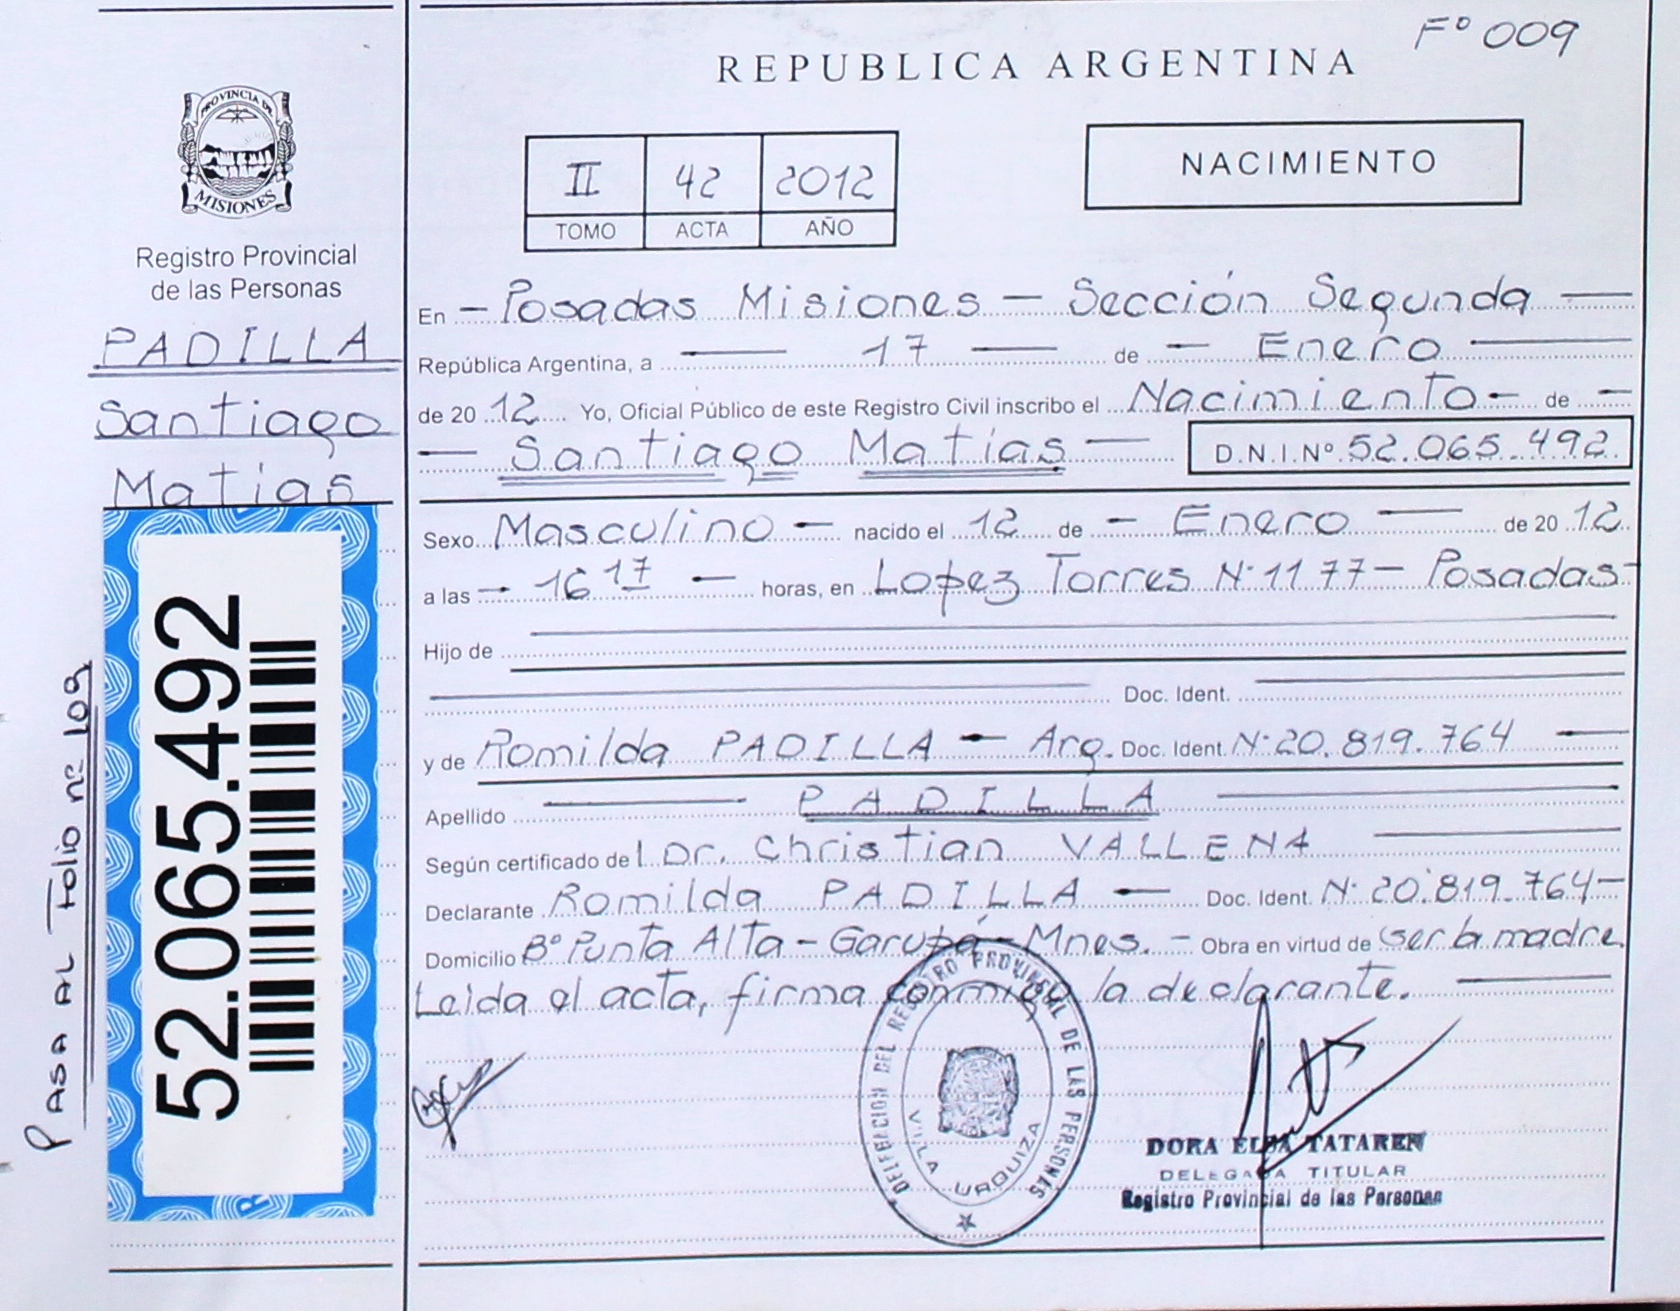 Fº 009
REPUBLICA ARGENTINA
PROVINCIA DE
MISIONES
Registro Provincial
de las Personas
PADILLA
Santiago
Matías
52.065.492
Pasa al Folio nº 109
II 42 2012
TOMO ACTA AÑO
NACIMIENTO
En - Posadas Misiones - Sección Segunda
República Argentina, a 17 de - Enero
de 20 12 Yo, Oficial Público de este Registro Civil inscribo el Nacimiento - de -
Santiago Matías D.N.I.Nº 52.065.492
Sexo Masculino - nacido el 12 de - Enero de 20 12
a las - 16 17 - horas, en Lopez Torres Nº 1177 - Posadas -
Hijo de
Doc. Ident.
y de Romilda PADILLA - Arg. Doc. Ident. Nº 20.819.764
Apellido PADILLA
Según certificado del Dr. Christian VALLENA
Declarante Romilda PADILLA - Doc. Ident. Nº 20.819.764 -
Domicilio Bº Punta Alta - Garupá - Mnes. - Obra en virtud de ser la madre.
Leida el acta, firma conmigo la declarante.
DELEGACION DEL REGISTRO PROVINCIAL DE LAS PERSONAS
VILLA URQUIZA
DORA ELSA TATAREN
DELEGADA TITULAR
Registro Provincial de las Personas